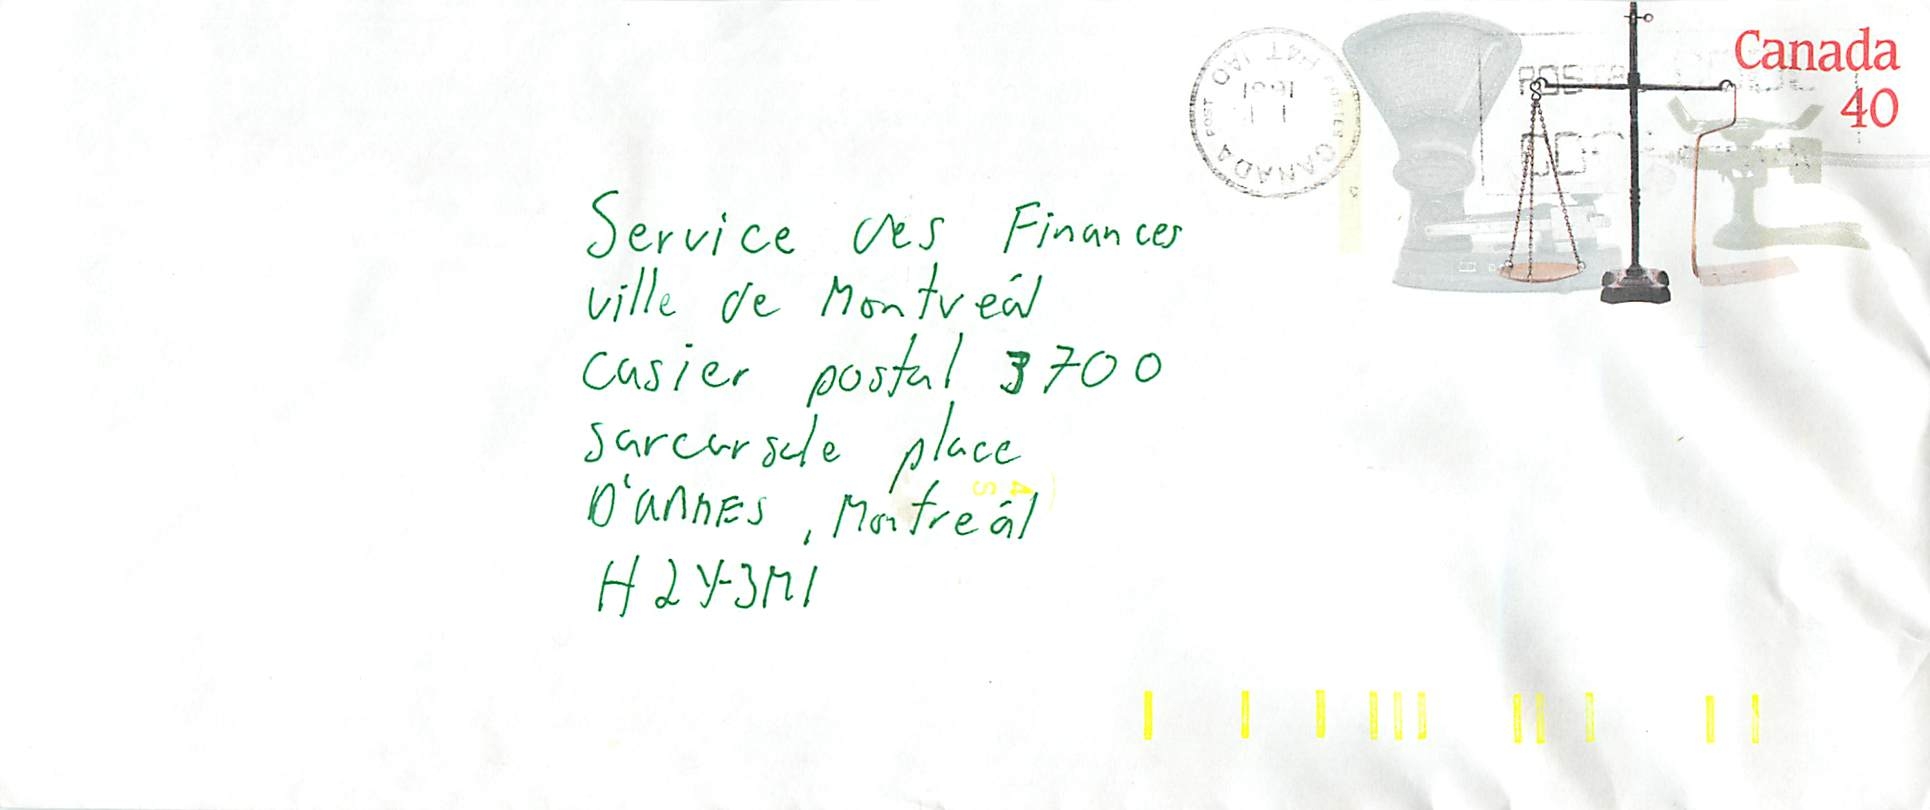 Canada
40
CANADA
POST
CANADA
Service des Finances
ville de Montreál
casier postal 3700
sarcursale place
D'ARMES, Montreál
H2Y3M1